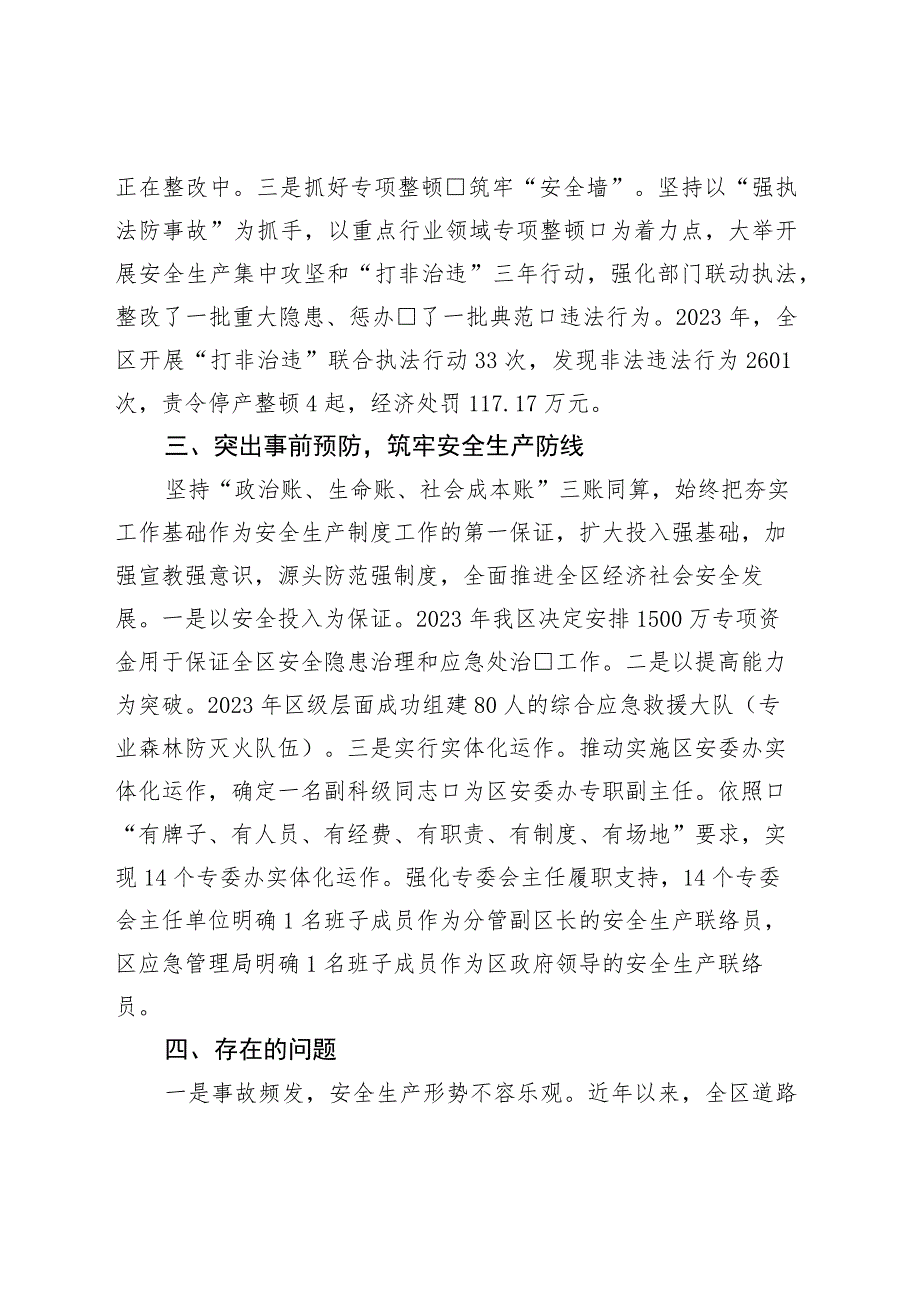 正在整改中。三是抓好专项整顿□筑牢“安全墙”。坚持以“强执
法防事故”为抓手，以重点行业领域专项整顿口为着力点，大举开
展安全生产集中攻坚和“打非治违”三年行动，强化部门联动执法，
整改了一批重大隐患、惩办□了一批典范口违法行为。2023 年，全
区开展“打非治违”联合执法行动 33 次，发现非法违法行为 2601
次，责令停产整顿 4 起，经济处罚 117.17 万元。
三、突出事前预防，筑牢安全生产防线
坚持“政治账、生命账、社会成本账”三账同算，始终把夯实
工作基础作为安全生产制度工作的第一保证，扩大投入强基础，加
强宣教强意识，源头防范强制度，全面推进全区经济社会安全发
展。一是以安全投入为保证。2023 年我区决定安排 1500 万专项资
金用于保证全区安全隐患治理和应急处治□工作。二是以提高能力
为突破。2023 年区级层面成功组建 80 人的综合应急救援大队（专
业森林防灭火队伍）。三是实行实体化运作。推动实施区安委办实
体化运作，确定一名副科级同志口为区安委办专职副主任。依照口
“有牌子、有人员、有经费、有职责、有制度、有场地”要求，实
现 14 个专委办实体化运作。强化专委会主任履职支持，14 个专委
会主任单位明确 1 名班子成员作为分管副区长的安全生产联络员，
区应急管理局明确 1 名班子成员作为区政府领导的安全生产联络
员。
四、存在的问题
一是事故频发，安全生产形势不容乐观。近年以来，全区道路